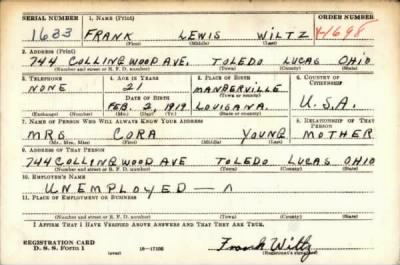 SERIAL NUMBER 1. NAME (Print) ORDER NUMBER
1633 FRANK LEWIS WILTZ 41698
(First) (Middle) (Last)
2. ADDRESS (Print)
744 COLLINGWOOD AVE. TOLEDO LUCAS OHIO
(Number and street or R. F. D. number) (Town) (County) (State)
3. TELEPHONE 4. AGE IN YEARS 5. PLACE OF BIRTH 6. COUNTRY OF CITIZENSHIP
NONE 21 MANDERVILLE
DATE OF BIRTH (Town or county)
FEB. 2, 1919 LOUISANA. U.S.A.
(Exchange) (Number) (Mo.) (Day) (Yr.) (State or country)
7. NAME OF PERSON WHO WILL ALWAYS KNOW YOUR ADDRESS 8. RELATIONSHIP OF THAT PERSON
MRS CORA YOUNG MOTHER
(Mr., Mrs., Miss) (First) (Middle) (Last)
9. ADDRESS OF THAT PERSON
744 COLLINGWOOD AVE TOLEDO LUCAS OHIO
(Number and street or R. F. D. number) (Town) (County) (State)
10. EMPLOYER'S NAME
UNEMPLOYED —
11. PLACE OF EMPLOYMENT OR BUSINESS
(Number and street or R. F. D. number) (Town) (County) (State)
I AFFIRM THAT I HAVE VERIFIED ABOVE ANSWERS AND THAT THEY ARE TRUE.
REGISTRATION CARD
D. S. S. FORM 1 (over) 16—17105 Frank Wiltz
(Registrant's signature)